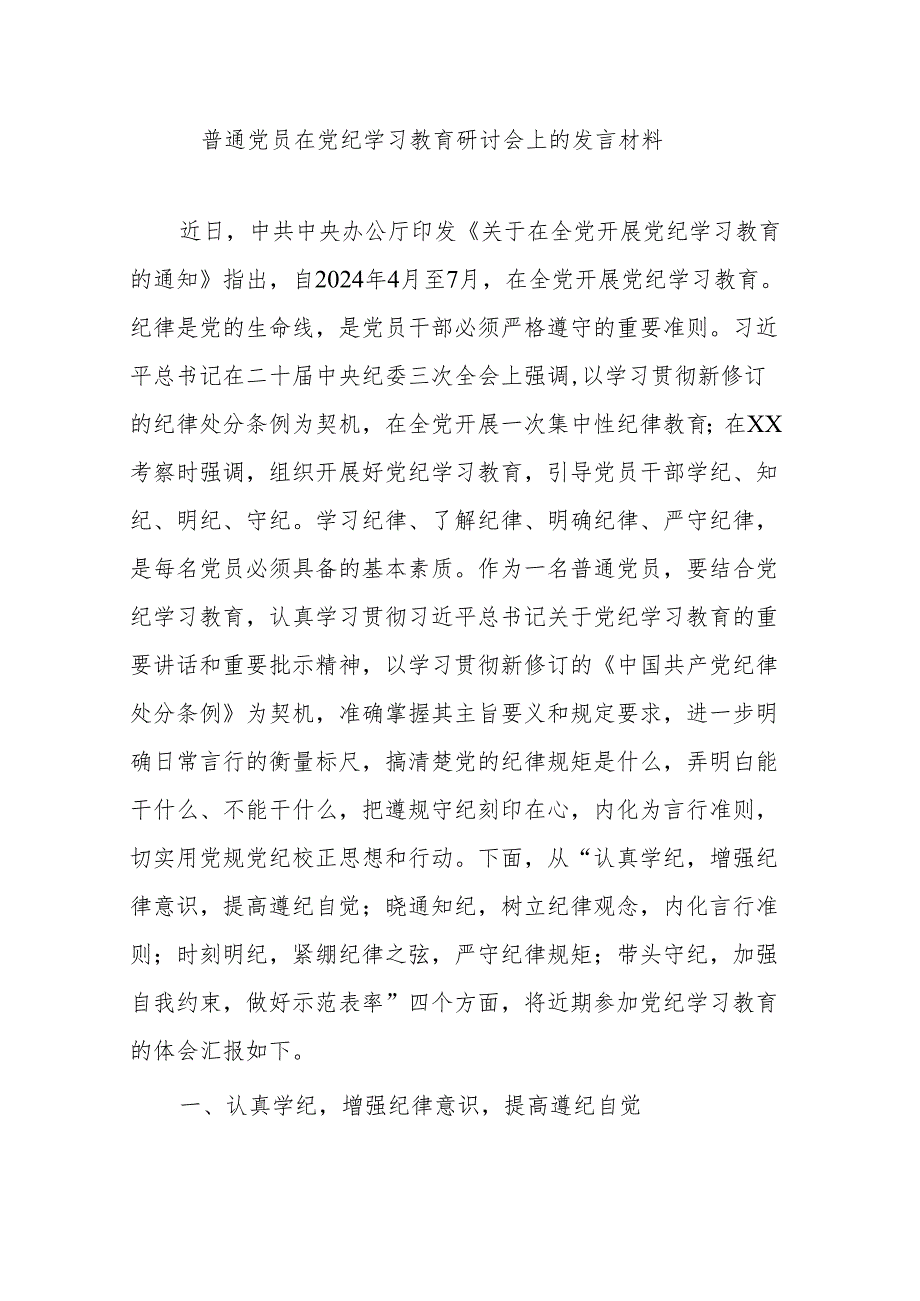 普通党员在党纪学习教育研讨会上的发言材料
近日，中共中央办公厅印发《关于在全党开展党纪学习教育
的通知》指出，自2024年4月至7月，在全党开展党纪学习教育。
纪律是党的生命线，是党员干部必须严格遵守的重要准则。习近
平总书记在二十届中央纪委三次全会上强调,以学习贯彻新修订
的纪律处分条例为契机，在全党开展一次集中性纪律教育；在XX
考察时强调，组织开展好党纪学习教育，引导党员干部学纪、知
纪、明纪、守纪。学习纪律、了解纪律、明确纪律、严守纪律，
是每名党员必须具备的基本素质。作为一名普通党员，要结合党
纪学习教育，认真学习贯彻习近平总书记关于党纪学习教育的重
要讲话和重要批示精神，以学习贯彻新修订的《中国共产党纪律
处分条例》为契机，准确掌握其主旨要义和规定要求，进一步明
确日常言行的衡量标尺，搞清楚党的纪律规矩是什么，弄明白能
干什么、不能干什么，把遵规守纪刻印在心，内化为言行准则，
切实用党规党纪校正思想和行动。下面，从“认真学纪，增强纪
律意识，提高遵纪自觉；晓通知纪，树立纪律观念，内化言行准
则；时刻明纪，紧绷纪律之弦，严守纪律规矩；带头守纪，加强
自我约束，做好示范表率”四个方面，将近期参加党纪学习教育
的体会汇报如下。
一、认真学纪，增强纪律意识，提高遵纪自觉